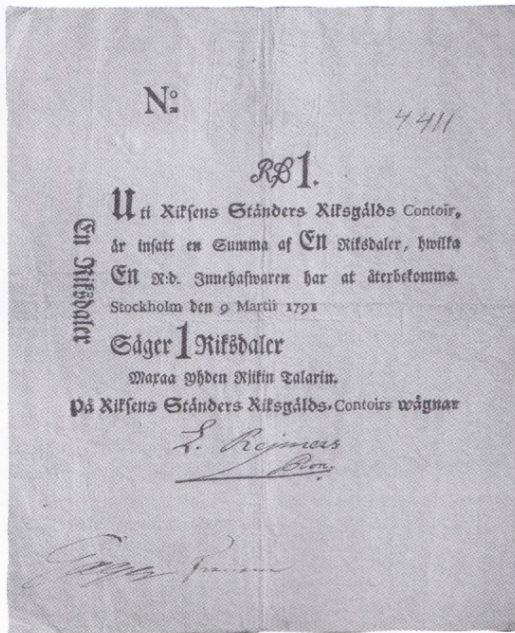 No
4411
RD 1.
Uti Riksens Ständers Riksgälds Contoir,
är insatt en Summa af En Riksdaler, hwilka
En R:d. Innehafwaren har at återbekomma.
Stockholm den 9 Martii 1791
Säger 1 Riksdaler
Maxaa Yhden Rjikin Talarin.
På Riksens Ständers Riksgälds-Contoirs wägnar
En Riksdaler
L. Rejmers